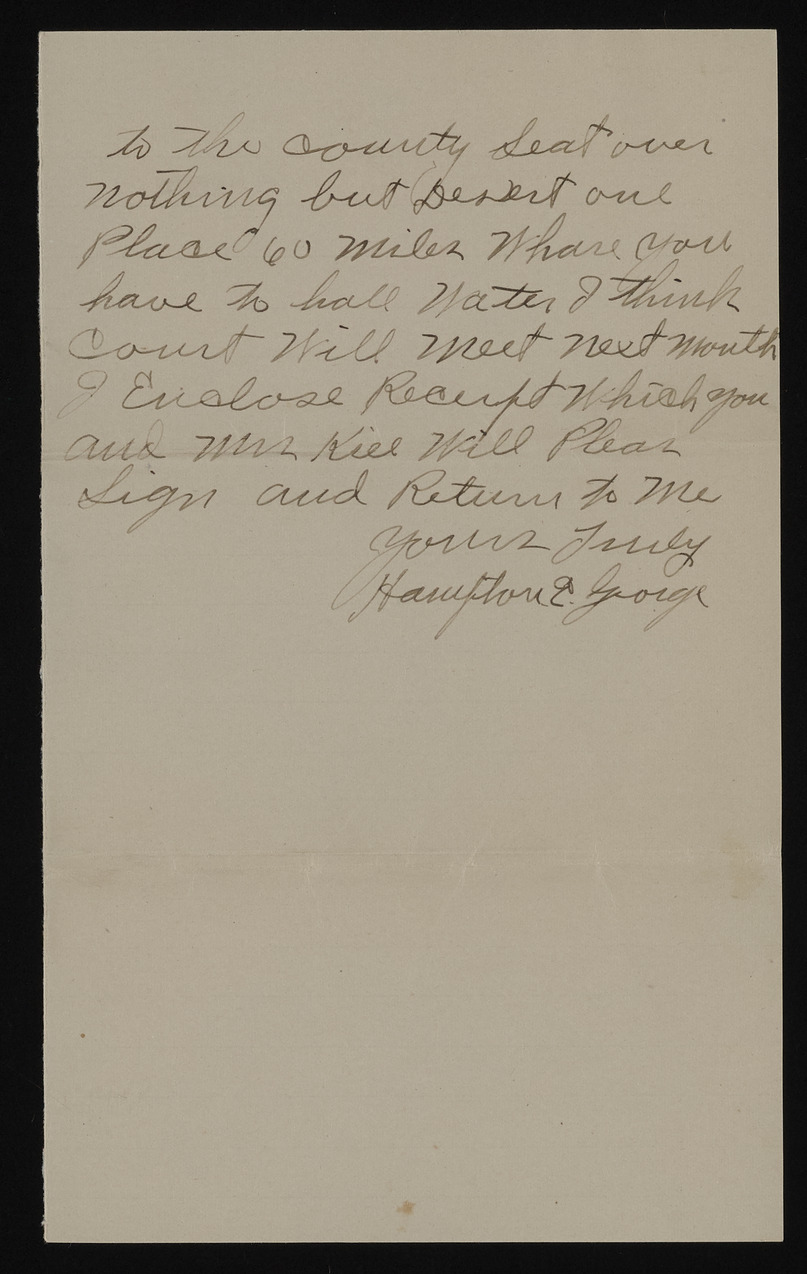 to the County Seat over
nothing but Desert one
Place 60 miles Whare you
have to hall Water I think
Court Will meet next month
I Enclose Receipt Which you
and Mrs Kile Will Pleas
Sign and Return to Me
Yours Truly
Hampton E. George